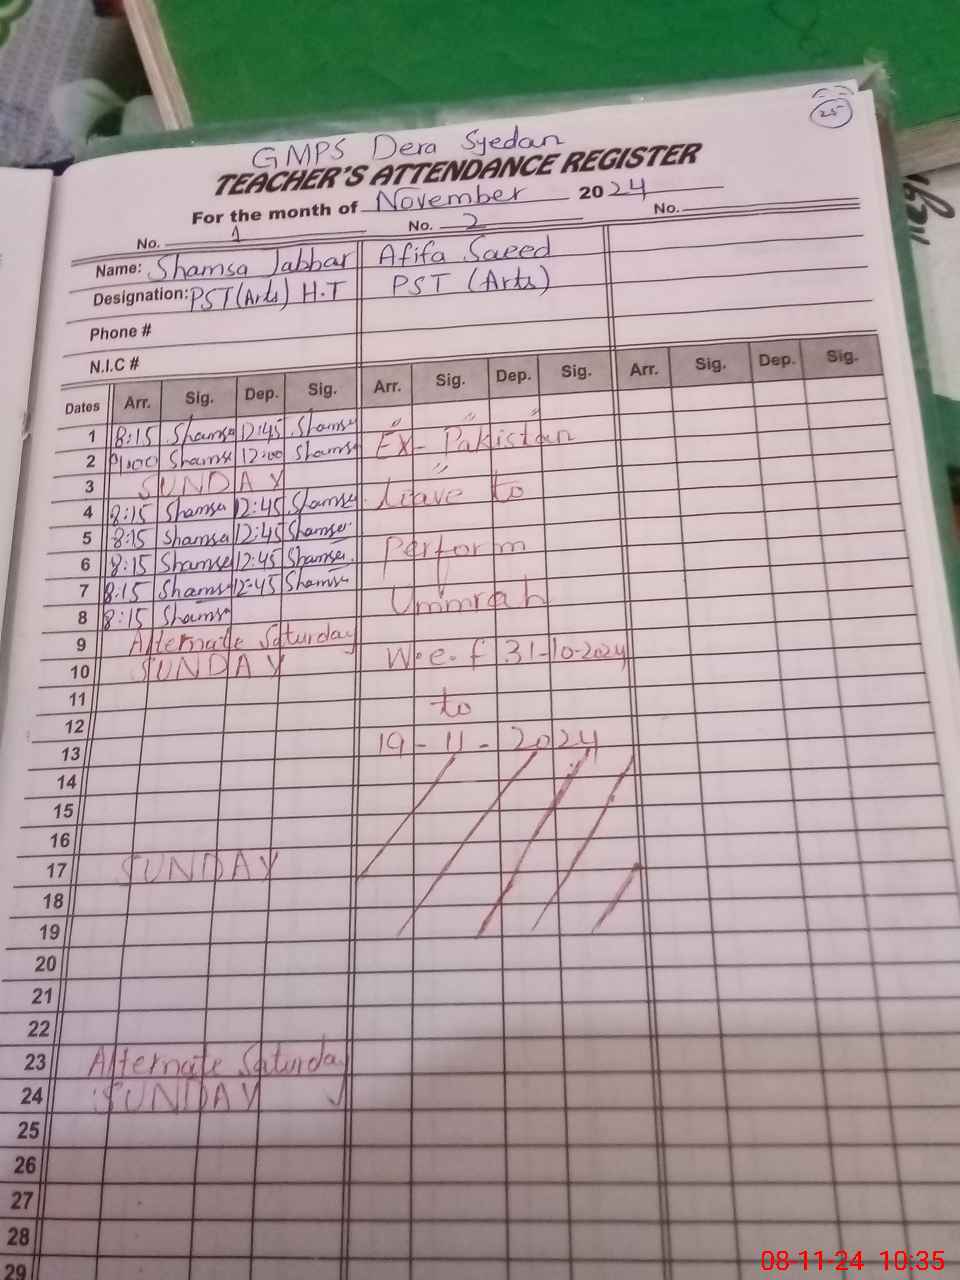 25
GMPS Dera Syedan
TEACHER'S ATTENDANCE REGISTER
For the month of November 2024
No. 1 No. 2 No.
Name: Shamsa Jabbar Afifa Saeed
Designation: PST(Arts) H.T PST (Arts)
Phone #
N.I.C #
Dates Arr. Sig. Dep. Sig. Arr. Sig. Dep. Sig. Arr. Sig. Dep. Sig.
1 8:15 Shamsa 12:45 Shamsa " " "
2 9:00 Shamsa 12:00 Shamsa Ex- Pakistan
3 SUNDAY "
4 8:15 Shamsa 12:45 Shamsa Leave to
5 8:15 Shamsa 12:45 Shamsa
6 8:15 Shamsa 12:45 Shamsa Perform
7 8:15 Shamsa 12:45 Shamsa
8 8:15 Shamsa Ummrah
9 Alternate Saturday
10 SUNDAY W.e.f 31-10-2024
11
12 to
13 19-11-2024
14
15
16
17 SUNDAY
18
19
20
21
22
23 Alternate Saturday
24 SUNDAY
25
26
27
28
29
08-11-24 10:35